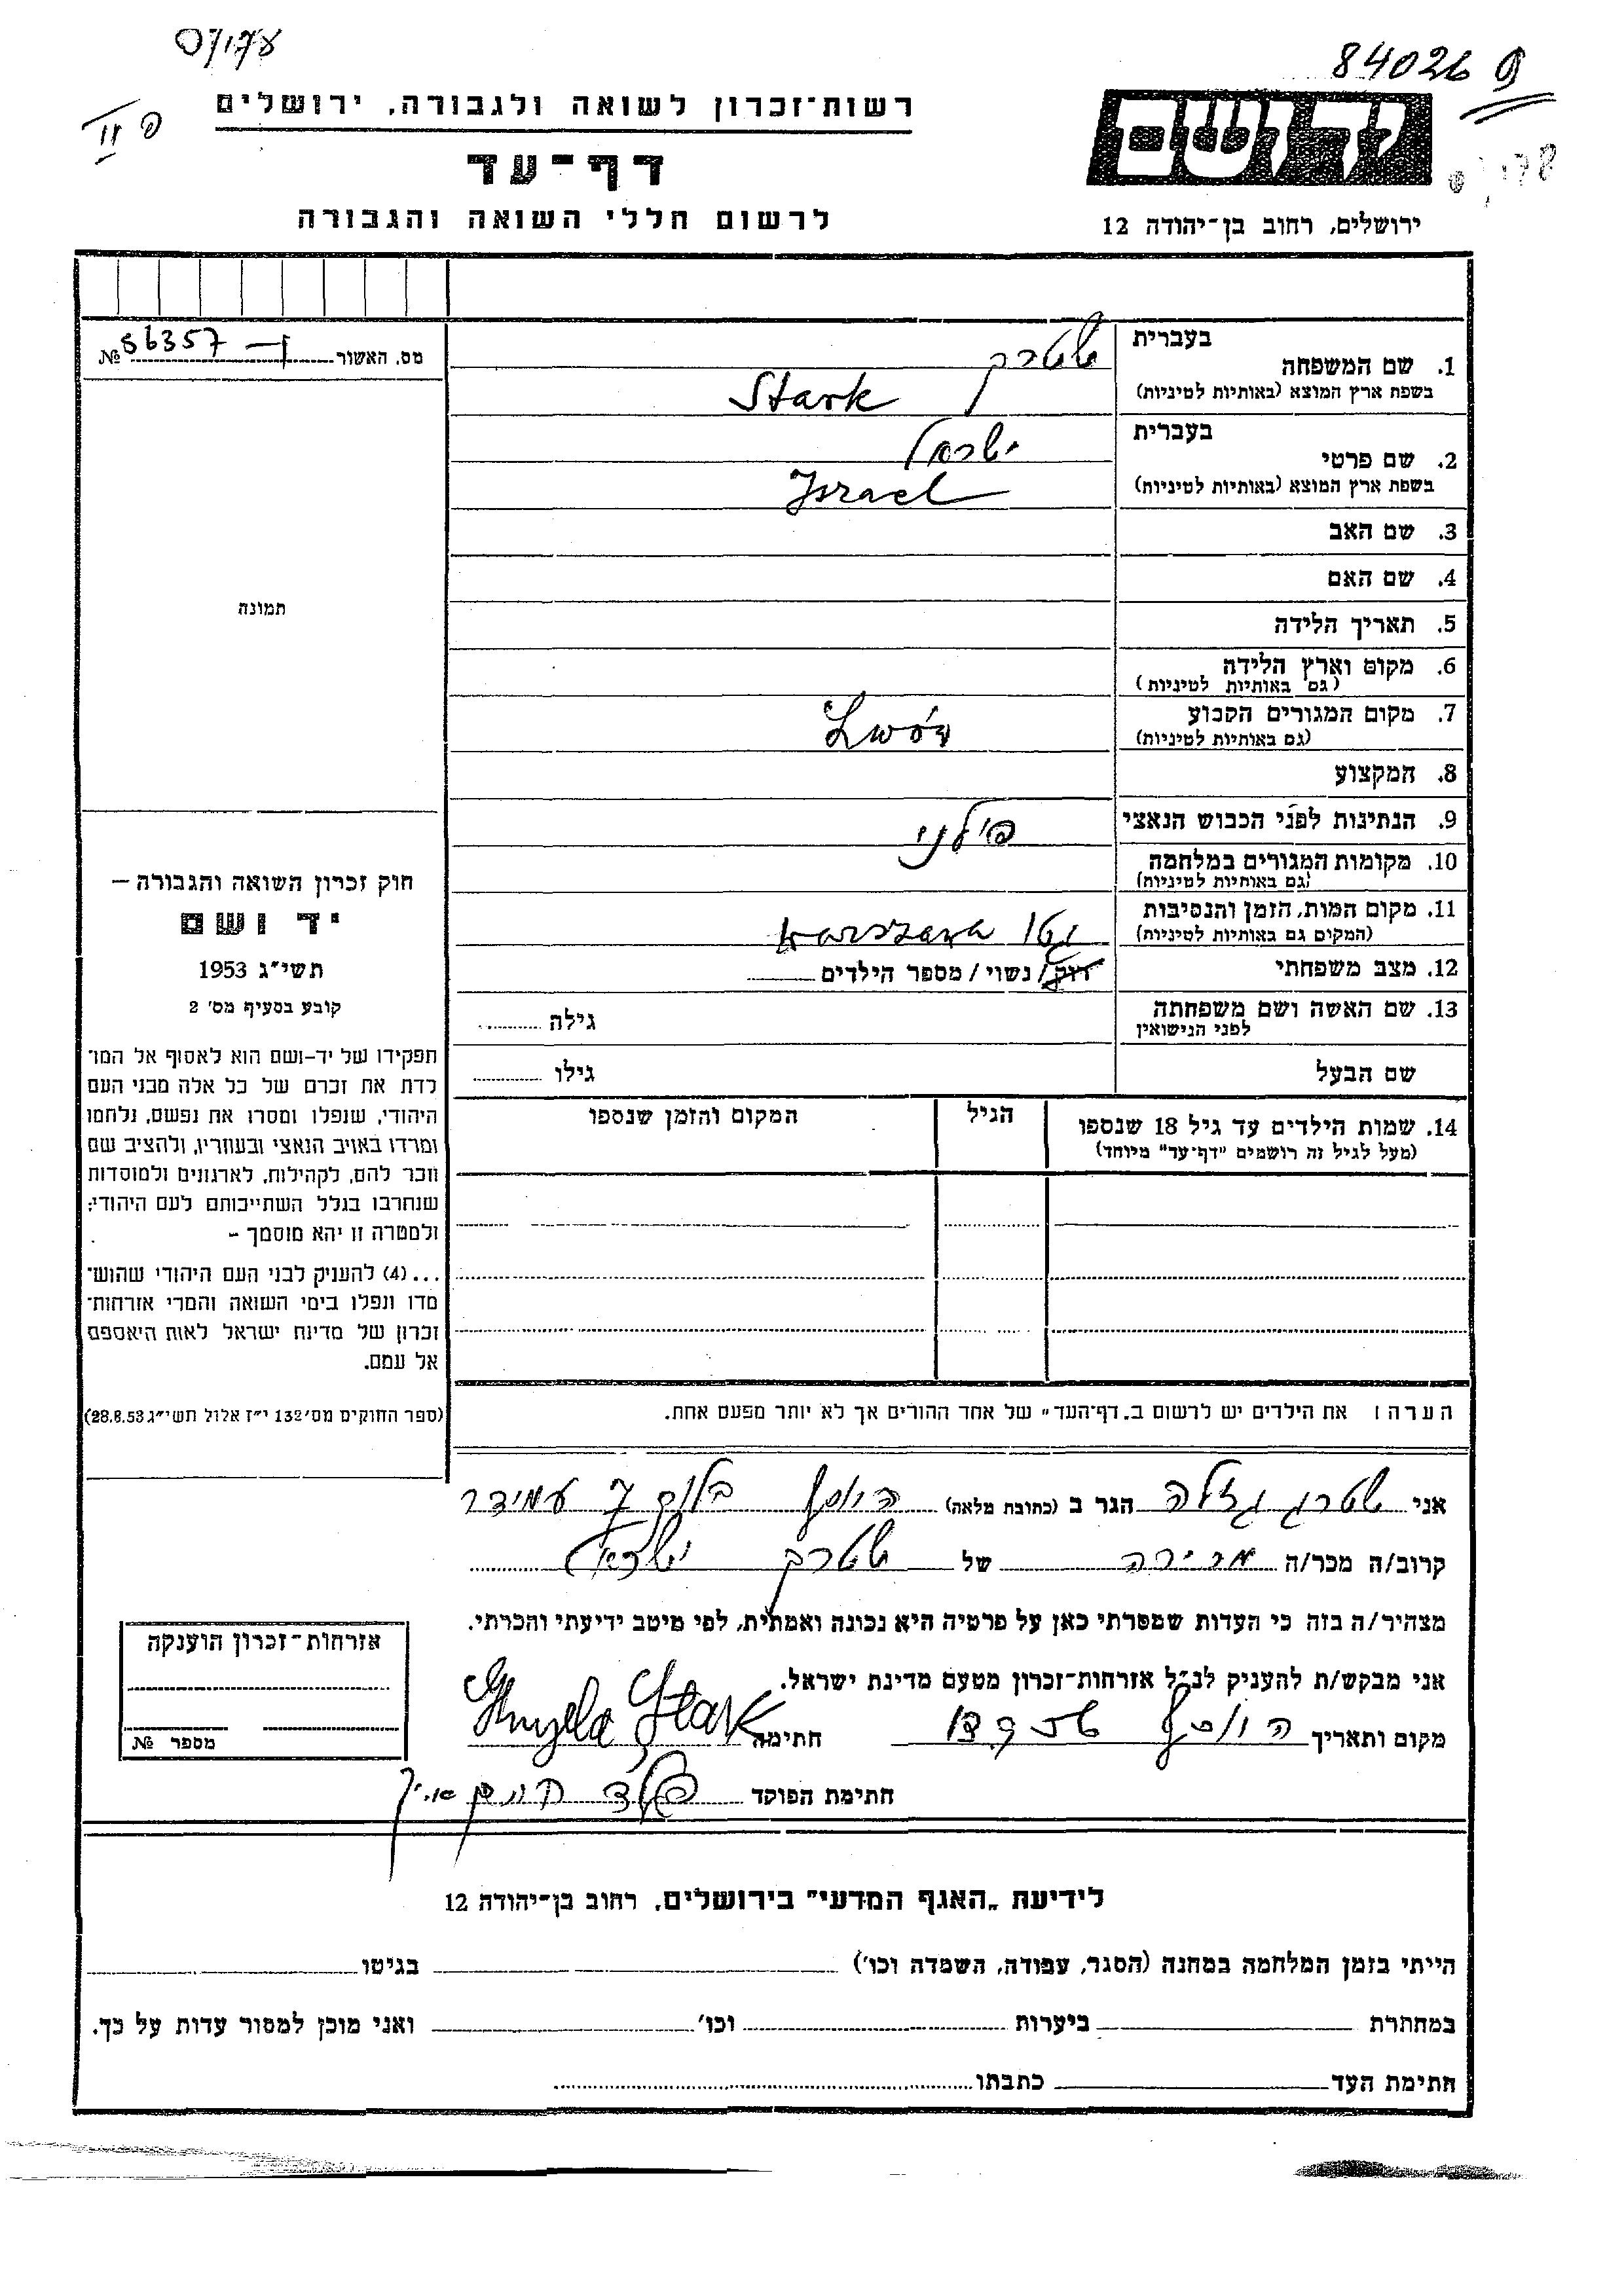 84026
רשות־זכרון לשואה ולגבורה, ירושלים
דף־עד
לרשום חללי השואה והגבורה
ידושם
ירושלים, רחוב בן־יהודה 12
מס. האשור № 86357
תמונה
בעברית שטרק
1. שם המשפחה
בשפת ארץ המוצא (באותיות לטיניות) Stark
בעברית ישראל
2. שם פרטי
בשפת ארץ המוצא (באותיות לטיניות) Israel
3. שם האב
4. שם האם
5. תאריך הלידה
6. מקום וארץ הלידה
(גם באותיות לטיניות)
7. מקום המגורים הקבוע Lwów
(גם באותיות לטיניות)
8. המקצוע
9. הנתינות לפני הכבוש הנאצי
10. מקומות המגורים במלחמה
(גם באותיות לטיניות)
11. מקום המות, הזמן והנסיבות
(המקום גם באותיות לטיניות)
12. מצב משפחתי רוק / נשוי / מספר הילדים
13. שם האשה ושם משפחתה גילה
לפני הנישואין
שם הבעל גילו
14. שמות הילדים עד גיל 18 שנספו הגיל המקום והזמן שנספו
(מעל לגיל זה רושמים "דף־עד" מיוחד)
חוק זכרון השואה והגבורה –
יד ושם
תשי״ג 1953
קובע בסעיף מס׳ 2
תפקידו של יד-ושם הוא לאסוף אל המו־
לדת את זכרם של כל אלה מבני העם
היהודי, שנפלו ומסרו את נפשם, נלחמו
ומרדו באויב הנאצי ובעוזריו, ולהציב שם
וזכר להם, לקהילות, לארגונים ולמוסדות
שנחרבו בגלל השתייכותם לעם היהודי;
ולמטרה זו יהא מוסמך –
...(4) להעניק לבני העם היהודי שהוש־
מדו ונפלו בימי השואה והמרי אזרחות־
זכרון של מדינת ישראל לאות היאספם
אל עמם.
(ספר החוקים מס׳ 132 י״ז אלול תשי״ג 28.8.53)
הערה: את הילדים יש לרשום ב„דף־העד״ של אחד ההורים אך לא יותר מפעם אחת.
אני שטרק הגר ב (כתובת מלאה) בלוק 7 עמידר
קרוב/ה מכר/ה מכירה של שטרק ישראל
מצהיר/ה בזה כי העדות שמסרתי כאן על פרטיה היא נכונה ואמתית, לפי מיטב ידיעתי והכרתי.
אני מבקש/ת להעניק לנ״ל אזרחות־זכרון מטעם מדינת ישראל.
מקום ותאריך חתימה Stark
חתימת הפוקד
אזרחות־זכרון הוענקה
מספר №
לידיעת „האגף המדעי״ בירושלים, רחוב בן־יהודה 12
הייתי בזמן המלחמה במחנה (הסגר, עבודה, השמדה וכו׳) בגיטו
במחתרת ביערות וכו׳ ואני מוכן למסור עדות על כך.
חתימת העד כתבתו